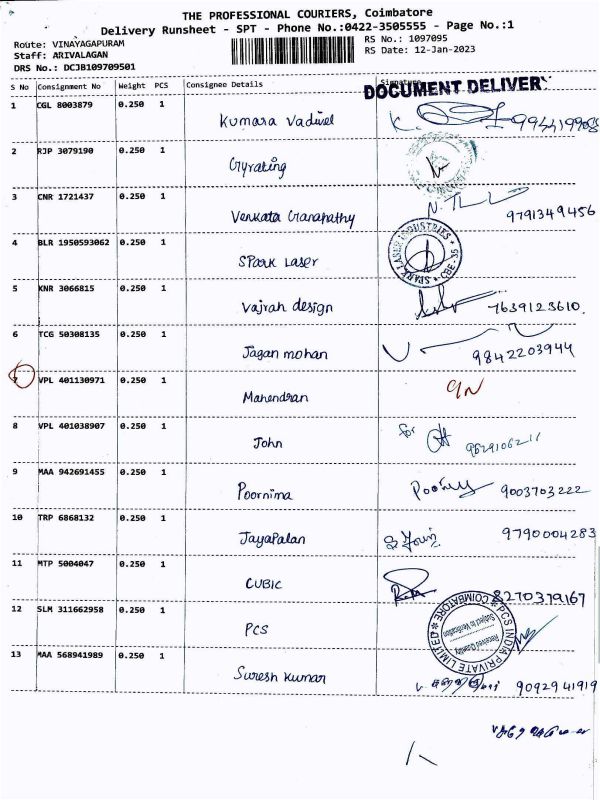 THE PROFESSIONAL COURIERS, Coimbatore
Delivery Runsheet - SPT - Phone No.:0422-3505555 - Page No.:1
Route: VINAYAGAPURAM
Staff: ARIVALAGAN
DRS No.: DCJB109709501
RS No.: 1097095
RS Date: 12-Jan-2023
S No Consignment No Weight PCS Consignee Details Signature
DOCUMENT DELIVERY
1 CGL 8003879 0.250 1 Kumara Vadivel
2 RJP 3079190 0.250 1 Gyrating
3 CNR 1721437 0.250 1 Venkata Ganapathy 9791349456
4 BLR 1950593062 0.250 1 SPark Laser SPARK LASER INDUSTRIES CBE-35
5 KNR 3066815 0.250 1 Vajrah design 7639123610.
6 TCG 50308135 0.250 1 Jagan mohan 9842203944
7 VPL 401130971 0.250 1 Mahendran
8 VPL 401038907 0.250 1 John for
9 MAA 942691455 0.250 1 Poornima 9003703222
10 TRP 6868132 0.250 1 JayaPalan 9790004283
11 MTP 5004047 0.250 1 CUBIC 8270379167
12 SLM 311662958 0.250 1 PCS PCS INDIA PRIVATE LIMITED COIMBATORE Received Quantity Subject to Verification
13 MAA 568941989 0.250 1 Suresh kumar 9092941919